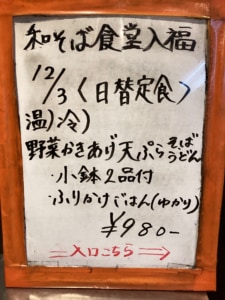 和そば食堂入福
12/3〈日替定食〉
温)冷)
野菜かきあげ天ぷらそばうどん
・小鉢2品付
・ふりかけごはん(ゆかり)
¥980-
⇒入口こちら⇒